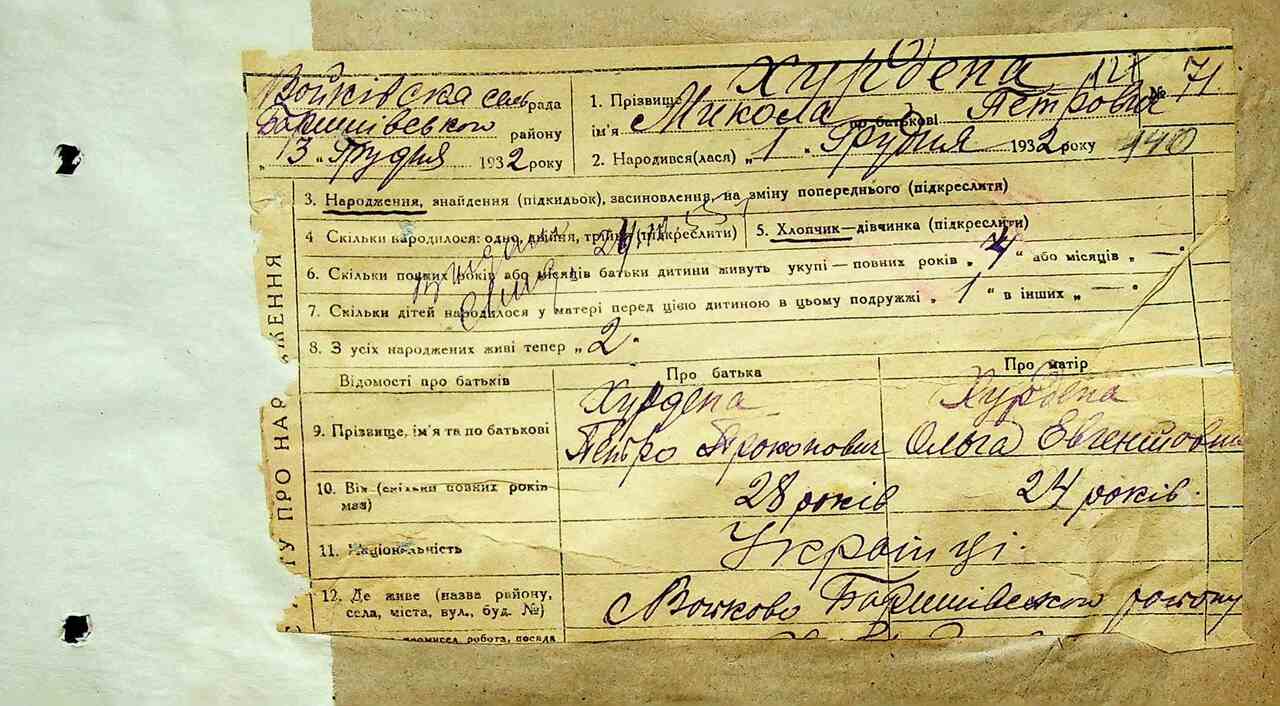 Войківска сельрада
Баришівського району
„13„ Грудня 1932 року
1. Прізвище Хурдепа № 71
ім'я Микола по батькові Петрович
2. Народився(лася) „1„ Грудня 1932 року 440
3. Народження, знайдення (підкидьок), засиновлення, на зміну попереднього (підкреслити)
4 Скільки народилося: одно, двійня, трійня (підкреслити) 5. Хлопчик—дівчинка (підкреслити)
6. Скільки повних років або місяців батьки дитини живуть укупі — повних років „4“ або місяців „—“
7. Скільки дітей народилося у матері перед цією дитиною в цьому подружжі „1“ в інших „—“
8. З усіх народжених живі тепер „2.
Відомості про батьків Про батька Про матір
9. Прізвище, ім'я та по батькові Хурдепа Петро Прокопович Хурдепа Ольга Евгеніївна
10. Вік (скільки повних років має) 28 років 24 років.
11. Національність Українці.
12. Де живе (назва району, села, міста, вул., буд. №) с Войково Баришівського району
промисел, робота, посада
ТУ ПРО НАР
ЖЕННЯ